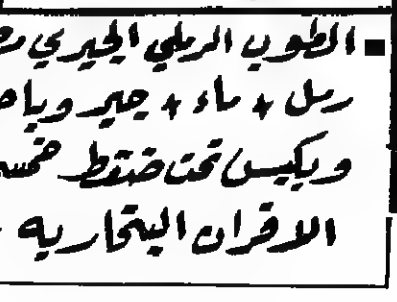 الطوب الرملي الجيري
رمل + ماء + جير
ويكبس تحت ضغط
الافران البخارية